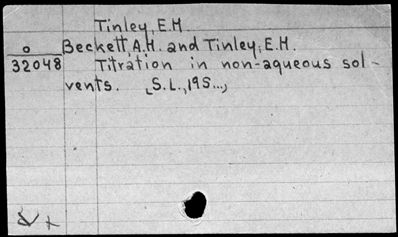 Tinley, E.H.
o Beckett, A.H. and Tinley, E.H.
32048 Titration in non-aqueous sol-
vents. [S.L., 195...]